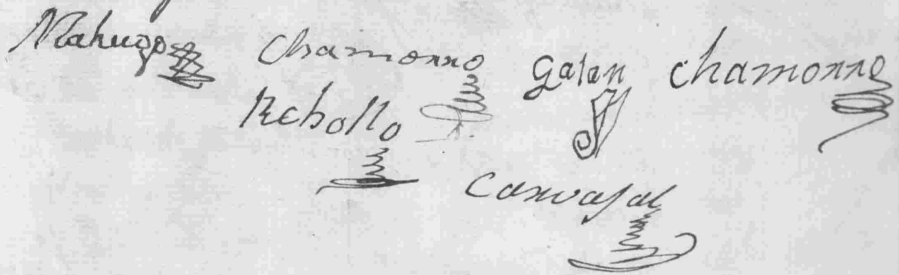 Mahugo Chamorro Galan Chamorro
Rebollo
Carvajal